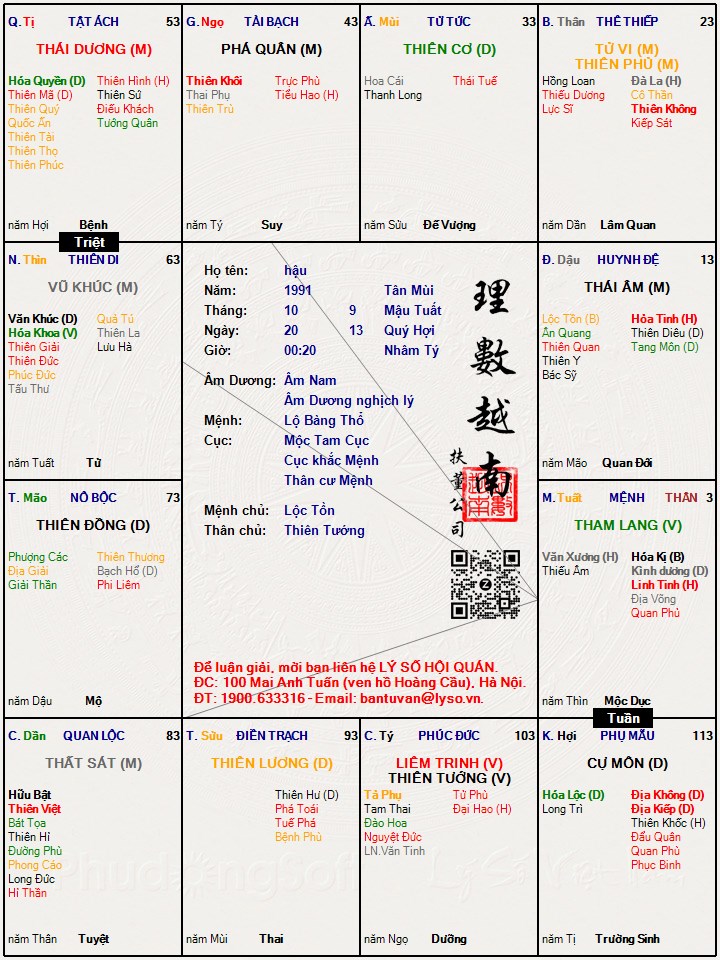 Q. Tị TẬT ÁCH 53
THÁI DƯƠNG (M)
Hóa Quyền (D) Thiên Hình (H)
Thiên Mã (D) Thiên Sứ
Thiên Quý Điếu Khách
Quốc Ấn Tướng Quân
Thiên Tài
Thiên Thọ
Thiên Phúc
năm Hợi Bệnh
G. Ngọ TÀI BẠCH 43
PHÁ QUÂN (M)
Thiên Khôi Trực Phù
Thai Phụ Tiểu Hao (H)
Thiên Trù
năm Tý Suy
Ấ. Mùi TỬ TỨC 33
THIÊN CƠ (D)
Hoa Cái Thái Tuế
Thanh Long
năm Sửu Đế Vượng
B. Thân THÊ THIẾP 23
TỬ VI (M)
THIÊN PHỦ (M)
Hồng Loan Đà La (H)
Thiếu Dương Cô Thần
Lực Sĩ Thiên Không
Kiếp Sát
năm Dần Lâm Quan
Triệt
N. Thìn THIÊN DI 63
VŨ KHÚC (M)
Văn Khúc (D) Quả Tú
Hóa Khoa (V) Thiên La
Thiên Giải Lưu Hà
Thiên Đức
Phúc Đức
Tấu Thư
năm Tuất Tử
Họ tên: hậu
Năm: 1991 Tân Mùi
Tháng: 10 9 Mậu Tuất
Ngày: 20 13 Quý Hợi
Giờ: 00:20 Nhâm Tý
Âm Dương: Âm Nam
Âm Dương nghịch lý
Mệnh: Lộ Bàng Thổ
Cục: Mộc Tam Cục
Cục khắc Mệnh
Thân cư Mệnh
Mệnh chủ: Lộc Tồn
Thân chủ: Thiên Tướng
理數越南
扶董公司
Để luận giải, mời bạn liên hệ LÝ SỐ HỘI QUÁN.
ĐC: 100 Mai Anh Tuấn (ven hồ Hoàng Cầu), Hà Nội.
ĐT: 1900.633316 - Email: bantuvan@lyso.vn.
Đ. Dậu HUYNH ĐỆ 13
THÁI ÂM (M)
Lộc Tồn (B) Hỏa Tinh (H)
Ân Quang Thiên Diêu (D)
Thiên Quan Tang Môn (D)
Thiên Y
Bác Sỹ
năm Mão Quan Đới
T. Mão NÔ BỘC 73
THIÊN ĐỒNG (D)
Phượng Các Thiên Thương
Địa Giải Bạch Hổ (D)
Giải Thần Phi Liêm
năm Dậu Mộ
M. Tuất MỆNH THÂN 3
THAM LANG (V)
Văn Xương (H) Hóa Kị (B)
Thiếu Âm Kình dương (D)
Linh Tinh (H)
Địa Võng
Quan Phủ
năm Thìn Mộc Dục
Tuần
C. Dần QUAN LỘC 83
THẤT SÁT (M)
Hữu Bật
Thiên Việt
Bát Tọa
Thiên Hỉ
Đường Phù
Phong Cáo
Long Đức
Hỉ Thần
năm Thân Tuyệt
T. Sửu ĐIỀN TRẠCH 93
THIÊN LƯƠNG (D)
Thiên Hư (D)
Phá Toái
Tuế Phá
Bệnh Phù
năm Mùi Thai
C. Tý PHÚC ĐỨC 103
LIÊM TRINH (V)
THIÊN TƯỚNG (V)
Tả Phụ Tử Phù
Tam Thai Đại Hao (H)
Đào Hoa
Nguyệt Đức
LN.Văn Tinh
năm Ngọ Dưỡng
K. Hợi PHỤ MẪU 113
CỰ MÔN (D)
Hóa Lộc (D) Địa Không (D)
Long Trì Địa Kiếp (D)
Thiên Khốc (H)
Đẩu Quân
Quan Phù
Phục Binh
năm Tị Trường Sinh